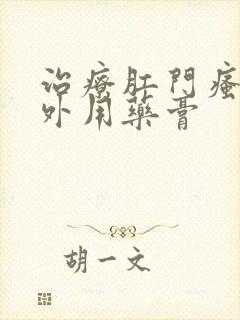 治療肛門瘙
外用藥膏
胡一文